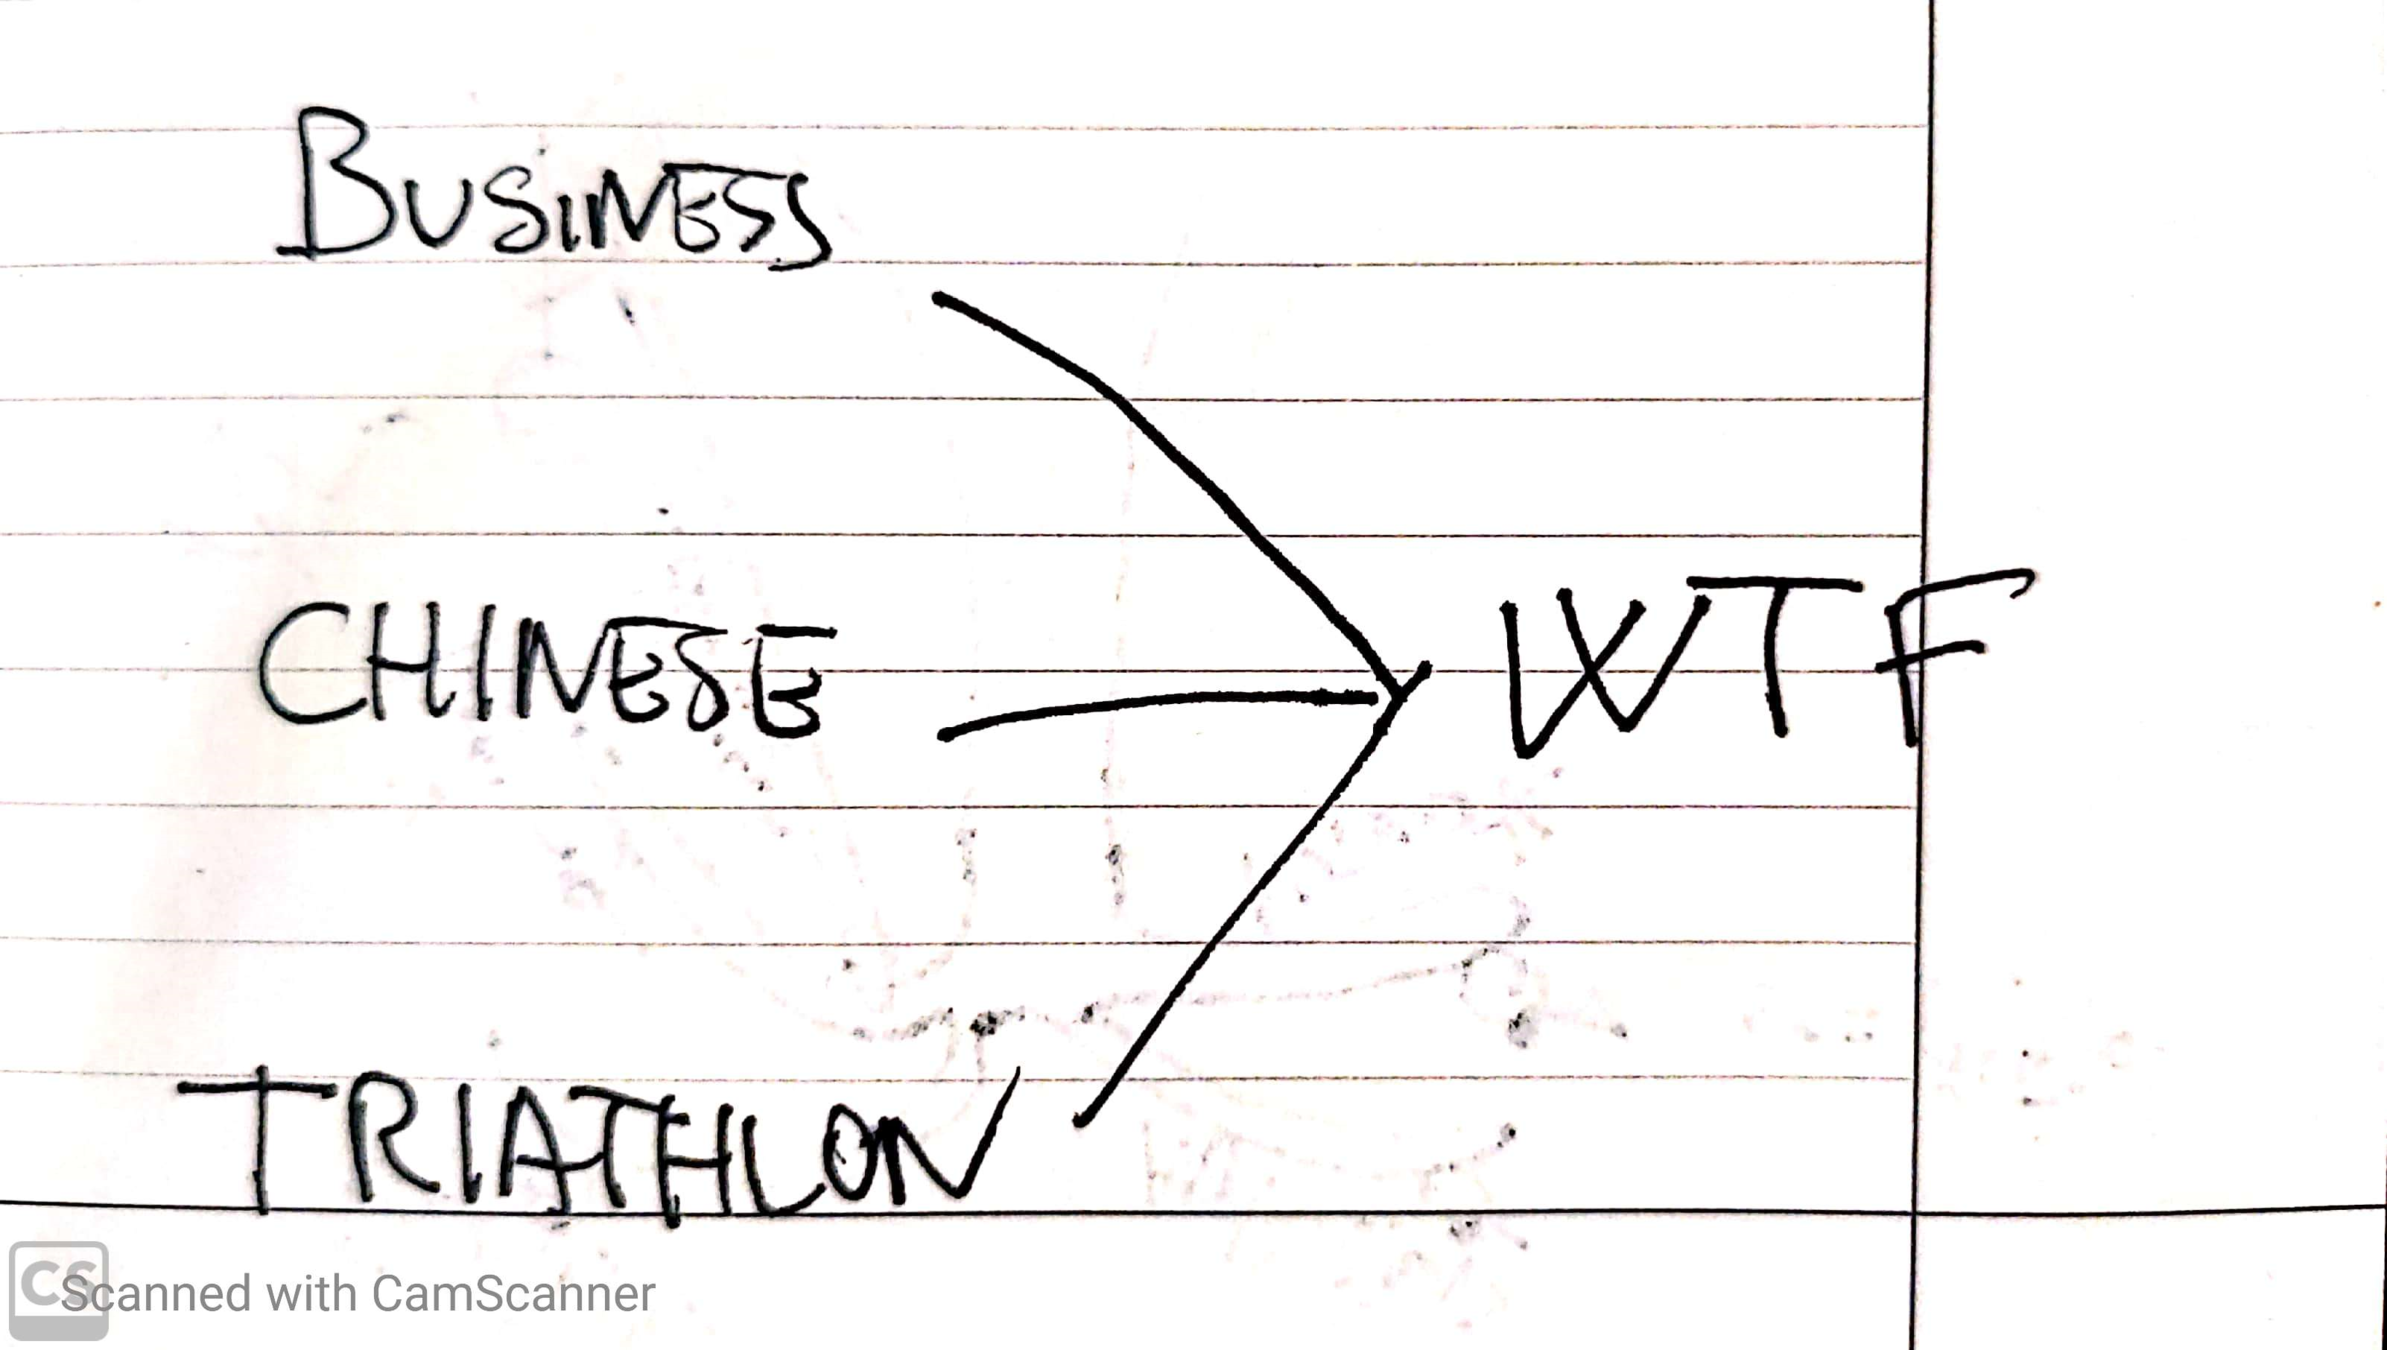 BUSINESS
CHINESE
WTF
TRIATHLON
CS
Scanned with CamScanner